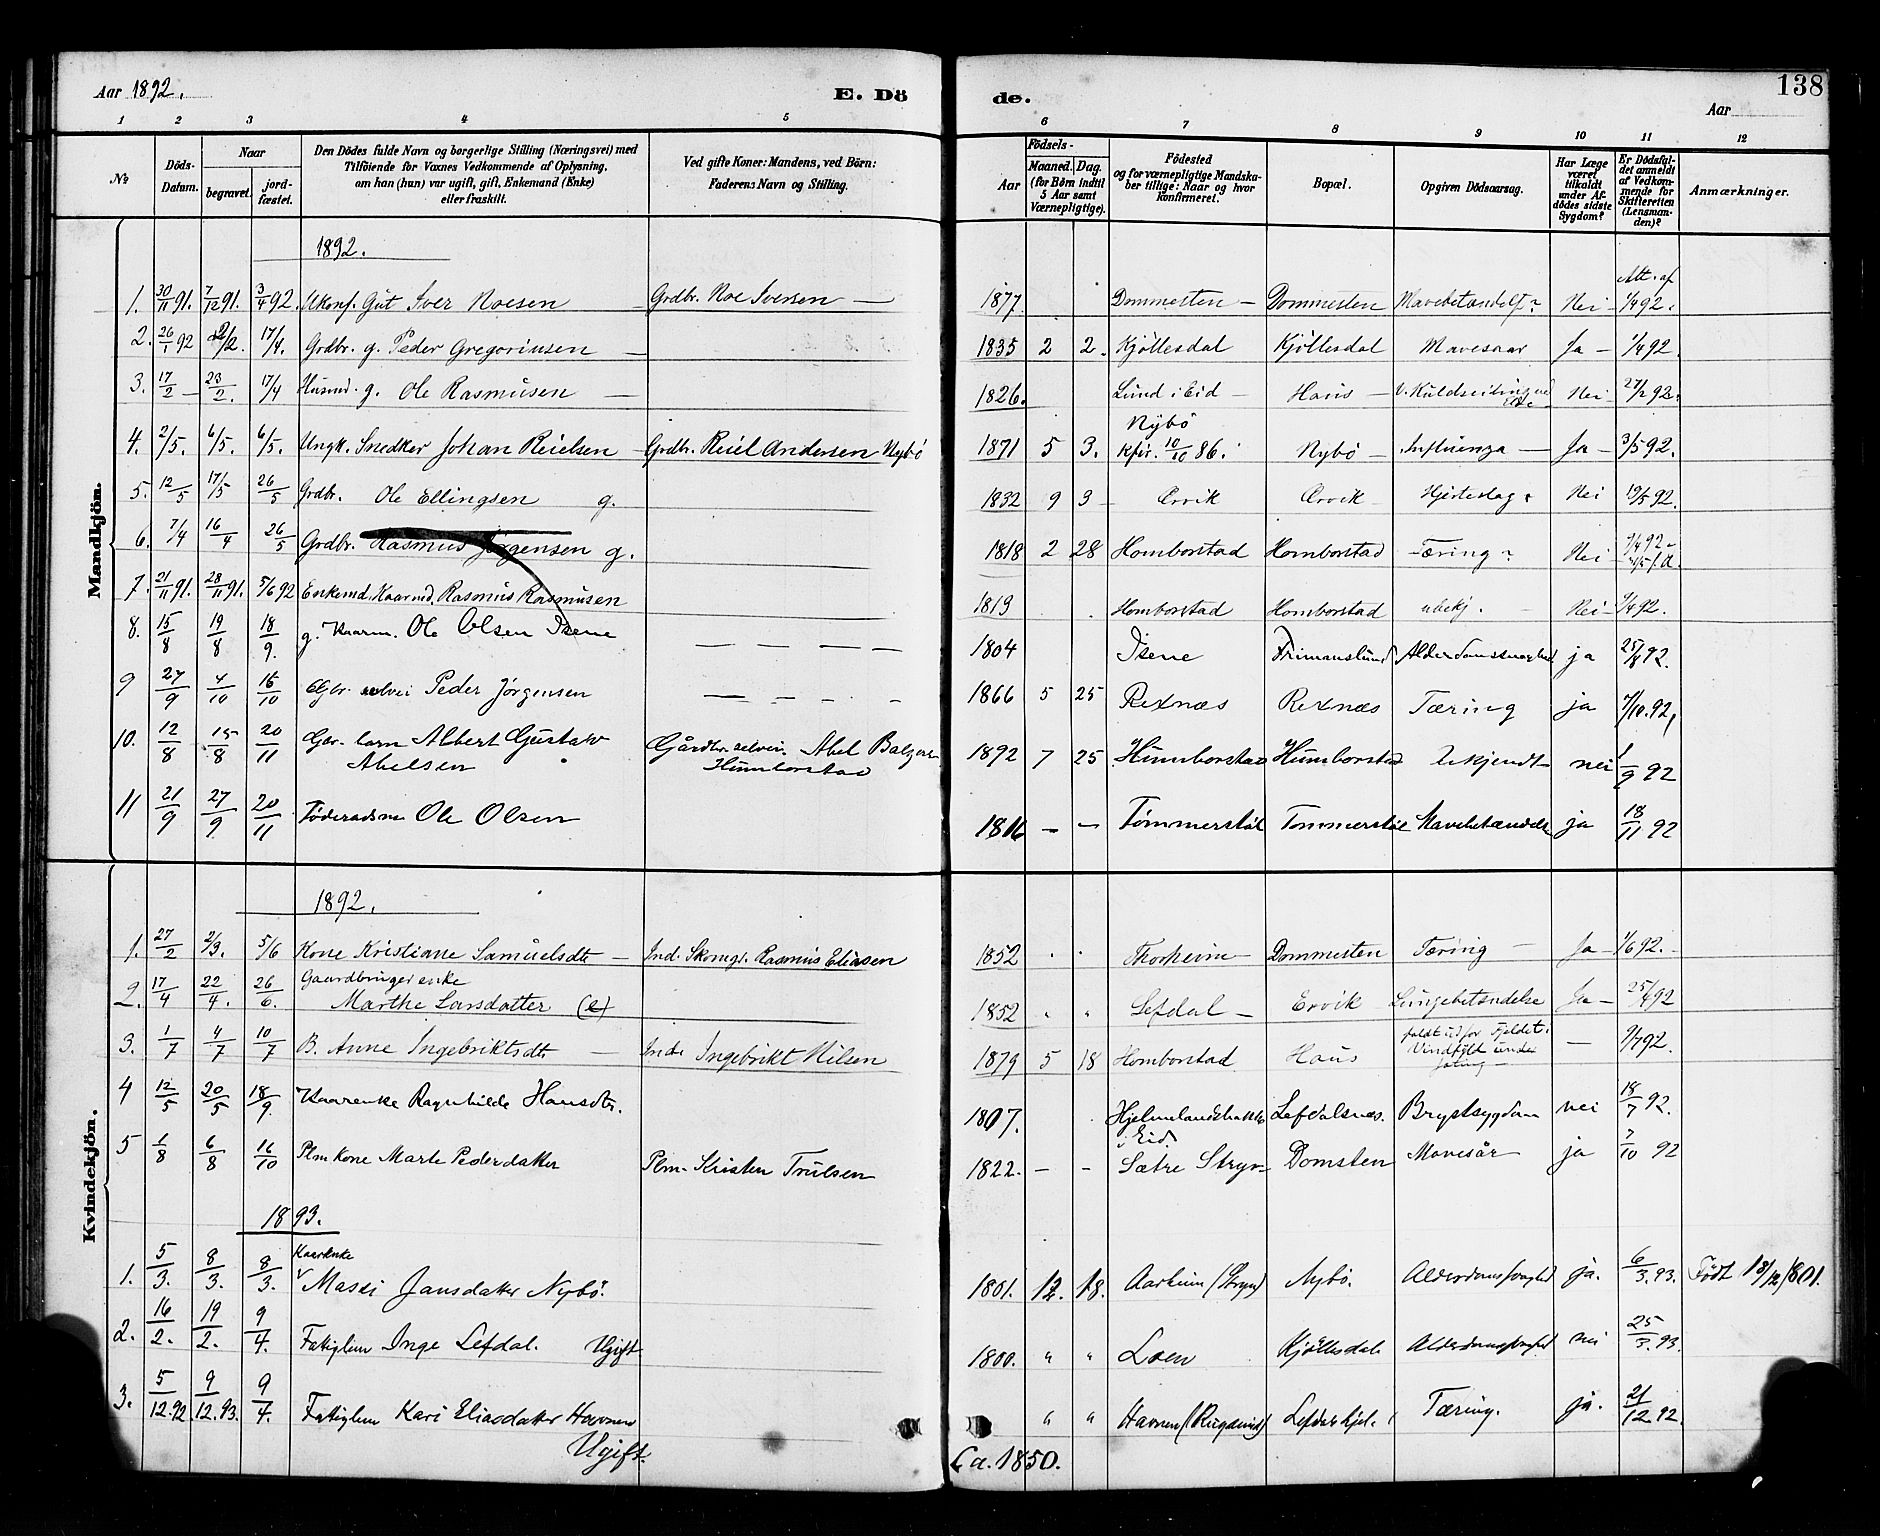 Aar 1892.
E. Dö
de.
Aar
138
1 2 3 4 5 6 7 8 9 10 11 12
No
Döds-Datum.
Naar
begravet.
jord-fæstet.
Den Dödes fulde Navn og borgerlige Stilling (Næringsvei) med
Tilföiende for Voxnes Vedkommende af Oplysning,
om han (hun) var ugift, gift, Enkemand (Enke)
eller fraskilt.
Ved gifte Koner: Mandens, ved Börn:
Faderens Navn og Stilling.
Födsels-
Aar
Maaned. Dag.
(for Börn indtil
5 Aar samt
Værnepligtige).
Födested
og for værnepligtige Mandska-
ber tillige: Naar og hvor
konfirmeret.
Bopæl.
Opgiven Dödsaarsag.
Har Læge
været
tilkaldt
under Af-
dödes sidste
Sygdom?
Er Dödsfal-
det anmeldt
af Vedkom-
mende for
Skifteretten
(Lensman-
den)?
Anmærkninger.
Mandkjön.
1892.
1. 30/11 91. 7/12 91. 3/4 92. Ukonf. Gut Iver Noesen Grdbr. Noe Iversen 1877 Dommesten Dommesten Nei Att. af 1/4 92.
2. 26/1 92 17/4. Grdbr. g. Peder Gregoriusen 1835 2 2. Kjöllesdal Kjöllesdal Mavesaar Ja 1/4 92.
3. 17/2 23/2. 17/4 Husmd. g. Ole Rasmusen 1826. Lund i Eid Haus Nei 27/2 92.
4. 2/5. 6/5. 6/5. Ungk. Snedker Johan Reielsen Grdbr. Reiel Andersen Nybö 1871 5 3. Nybö Kfir. 10/10 86. Nybö Influenza Ja 3/5 92.
5. 12/5 17/5 26/5 Grdbr. Ole Ellingsen g. 1832 9 3 Ervik Ervik Hjerteslag Nei 19/5 92.
6. 7/4 16/4 26/5 Grdbr. Rasmus Jörgensen g. 1818 2 28 Homborstad Homborstad Tæring Nei
7. 21/11 91. 28/11 91. 5/6 92 Enkemd. Kaarmd. Rasmus Rasmusen 1819 Homborstad Homborstad ubekj. Nei 1/4 92.
8. 15/8 19/8 18/9. g. Kaarm. Ole Olsen Isene 1804 Isene Alderdomssvaghed ja 25/8 92.
9 27/9 4/10 16/10 Gbr. selvei Peder Jörgensen 1866 5 25 Rexnæs Rexnæs Tæring ja 7/10. 92,
10. 12/8 15/8 20/11 Gbr. barn Albert Gustav Gårdbr. selvei. Abel 1892 7 25 Humborstad Humborstad Ukjendt nei 1/9 92
Abelsen Humborstad
11 21/9 27/9. 20/11 Föderaadsm Ole Olsen 1816 Tömmerstöl Tommerstöl Mavebetændelse ja 18/11 92
Kvindekjön.
1892.
1. 27/2 2/3. 5/6 Kone Kristiane Samuelsdtr Ind. Skomgr. Rasmus Eliasen 1852 Thorheim Dommesten Tæring Ja 1/6 92.
2. 17/4 22/4. 26/6. Gaardbruger enke
Marthe Larsdatter (e) 1852 Lefdal Ervik Lungebetændelse Ja 25/4 92
3. 1/7 4/7 10/7 B. Anne Ingebriktsdtr Inds. Ingebrikt Nilsen 1879 5 18 Homborstad Haus faldt udfor Fjeldet. 7/7 92.
4 12/5 20/5 18/9. Kaarenke Ragnhilde Hansdtr. 1807. i Eid. Lefdalsnes. Brystsygdom nei 18/7 92.
5 1/8 6/8 16/10 Plm Kone Marte Pedersdatter Plm. Kristen Trulsen 1822. Sætre Stryn Domsten Mavesår ja 7/10 92
1893.
1. 5/3. 8/3. 8/3. Kaarenke
Massi Jansdatter Nybö. 1801. 12. 18. Aarheim (Stryn) Nybö. Alderdomssvaghed ja. 6/3. 93. Födt 18/12 1801.
2. 16/2. 19/2. 9/4. Fattiglem Inge Lefdal. Ugift 1800. " " Loen Kjöllesdal Alderdomssvaghed nei 25/3. 93.
3. 5/12. 92 9/12. 93. 9/4. Fattiglem Kari Eliasdatter Havnen " " Havnen Tæring. ja. 21/12 92.
Ugift. Ca. 1850.